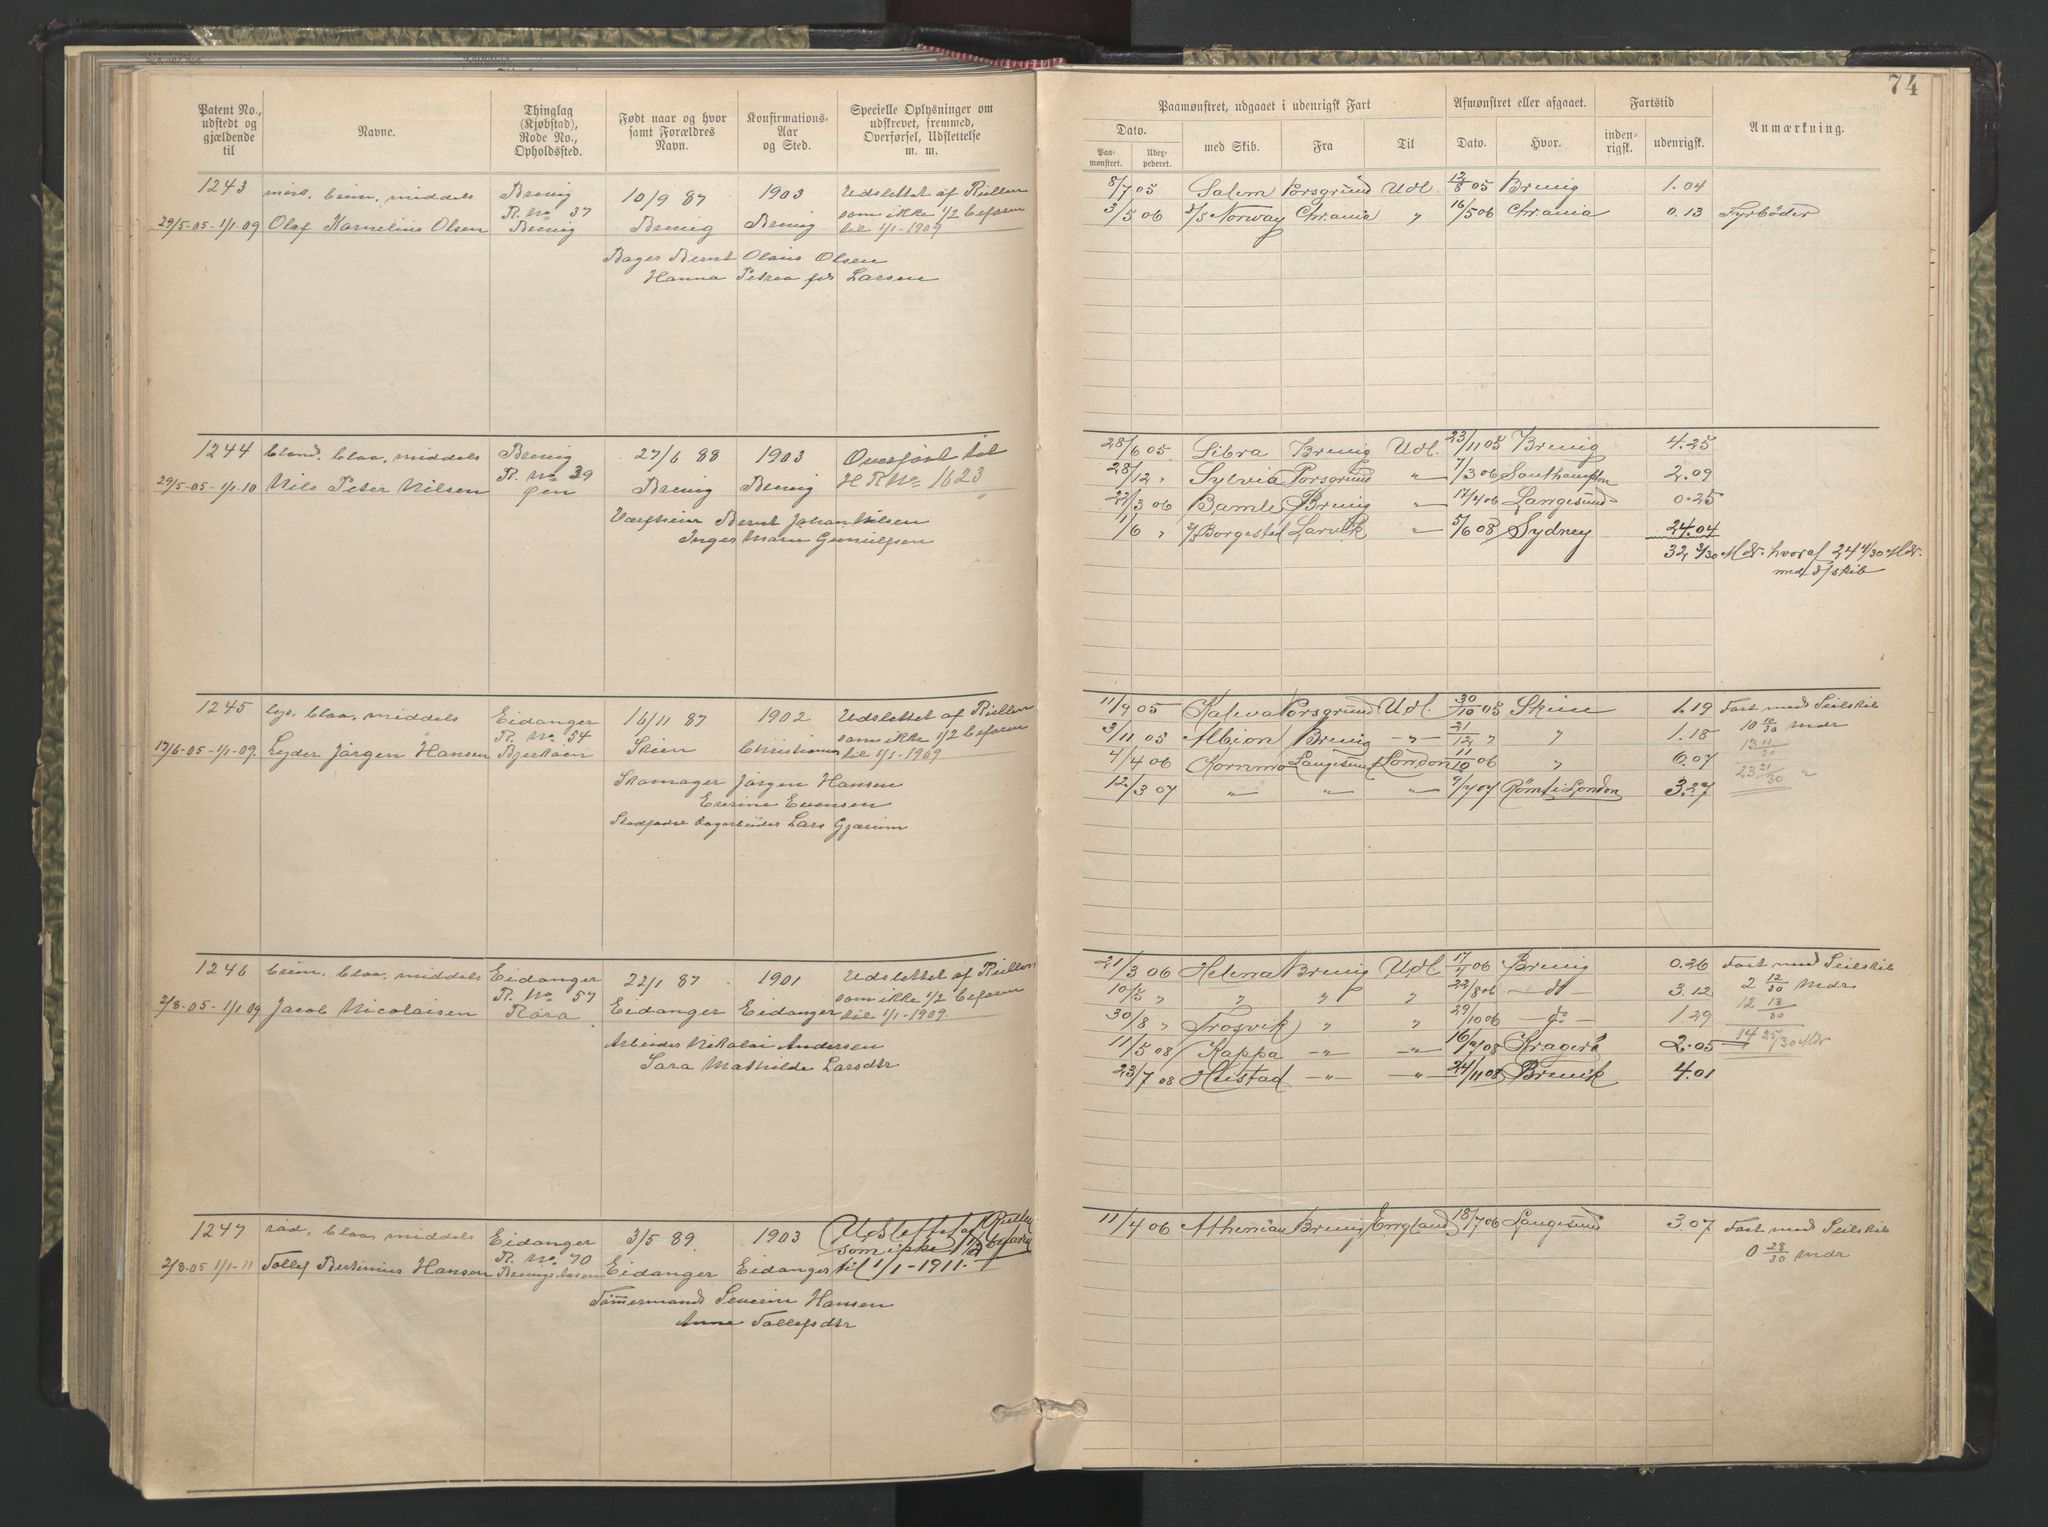 74
Patent No., udstedt og gjældende til
Navne.
Thinglag (Kjøbstad), Rode No., Opholdssted.
Født naar og hvor samt Forældres Navn.
Konfirmations-Aar og Sted.
Specielle Oplysninger om udskrevet, fremmed, Overførsel, Udslettelse m. m.
Paamønstret, udgaaet i udenrigsk Fart
Afmønstret eller afgaaet.
Fartstid
Anmærkning.
Dato.
Paa-mønstret.
Udex-pederet.
med Skib.
Fra
Til
Dato.
Hvor.
inden-rigsk.
udenrigsk.
1243 mørk, brun, middels Brevig 10/9 87 1903 Udslettet af Rullen
R. No 37 som ikke 1/2 befaren
29/5-05-1/1-09 Olaf Kornelius Olsen Brevig Brevig Brevig til 1/1-1909
Bager Bernt Olaus Olsen
Hanna Petrea før Larsen
8/7 05 Salem Porsgrund Udl. 12/8 05 Brevig 1.04
3/5 06 D/S Norway Chrania " 16/5 06 Chrania 0.13 Fyrbøder
1244 blond, blaa, middels Brevig 27/6 88 1903 Overført til
R. No 39 H R No 1623
29/5-05-1/1-10 Nils Peter Nilsen Øen Brevig Brevig
Bernt Johan Nilsen
Inger Marie Gunulfsen
28/6 05 Libra Brevig Udl. 23/11 05 Brevig 4.25
28/12 " Sylvia Porsgrund " 7/3 06 Southampton 2.09
22/3 06 Bamle Brevig " 17/4 06 Langesund 0.25
11/6 " D/S Borgestad Larvik " 5/6 08 Sydney 24.04
32 3/30 Mdr. hvoraf 24 4/30 Mdr.
med D/skib
1245 lys, blaa, middels Eidanger 16/11 87 1902 Udslettet af Rullen
R. No 54 som ikke 1/2 befaren
17/6-05-1/1-09. Lyder Jørgen Hansen Bjerkøen Skien Christiania til 1/1-1909
Skomager Jørgen Hansen
Evensen
Stedfader Dagarbeider Lars Gjærum
11/9 05 Kaleva Porsgrund Udl. 30/10 05 Skien 1.19 Fart med Seilskib
10 10/30 Mdr
3/11 05 Albion Brevig " 21/12 " " 1.18
13 11/30
4/4 06 Kornmo Langesund London 11/10 06 " 6.07
23 21/30 "
12/3 07 " " " 9/7 07 Rømt i London 3.27
1246 brun, blaa, middels Eidanger 22/1 87 1901 Udslettet af Rullen
R. No 57 som ikke 1/2 befaren
2/8-05-1/1 09 Jacob Nicolaisen Røra Eidanger Eidanger til 1/1-1909.
Arbeider Nikolai Andersen
Sara Mathilde Larsdtr
21/3 06 Helena Brevig Udl 17/4 06 Brevig 0.26 Fart med Seilskib
2 12/30 Mdr
10/5 " " " " 22/8 06 do 3.12
12 13/30
30/8 " Frosvik " " 29/10 06 do 1.29
14 25/30 Mdr
11/5 08 Kappa " " 16/7 08 Kragerø 2.05
23/7 08 Heistad " " 24/11 08 Brevik 4.01
1247 rød, blaa, middels Eidanger 3/5 89. 1903 Udslettet af Rullen
R. No 70 som ikke 1/2 befaren
2/8-05 1/1-11 Tollef Bertinius Hansen Brevigstrand Eidanger Eidanger til 1/1-1911.
Tømmermand Severin Hansen
Anne Tollefsdtr
11/4 06 Athenian Brevig England 18/7 06 Langesund 3.07 Fart med Seilskib
0 28/30 Mdr